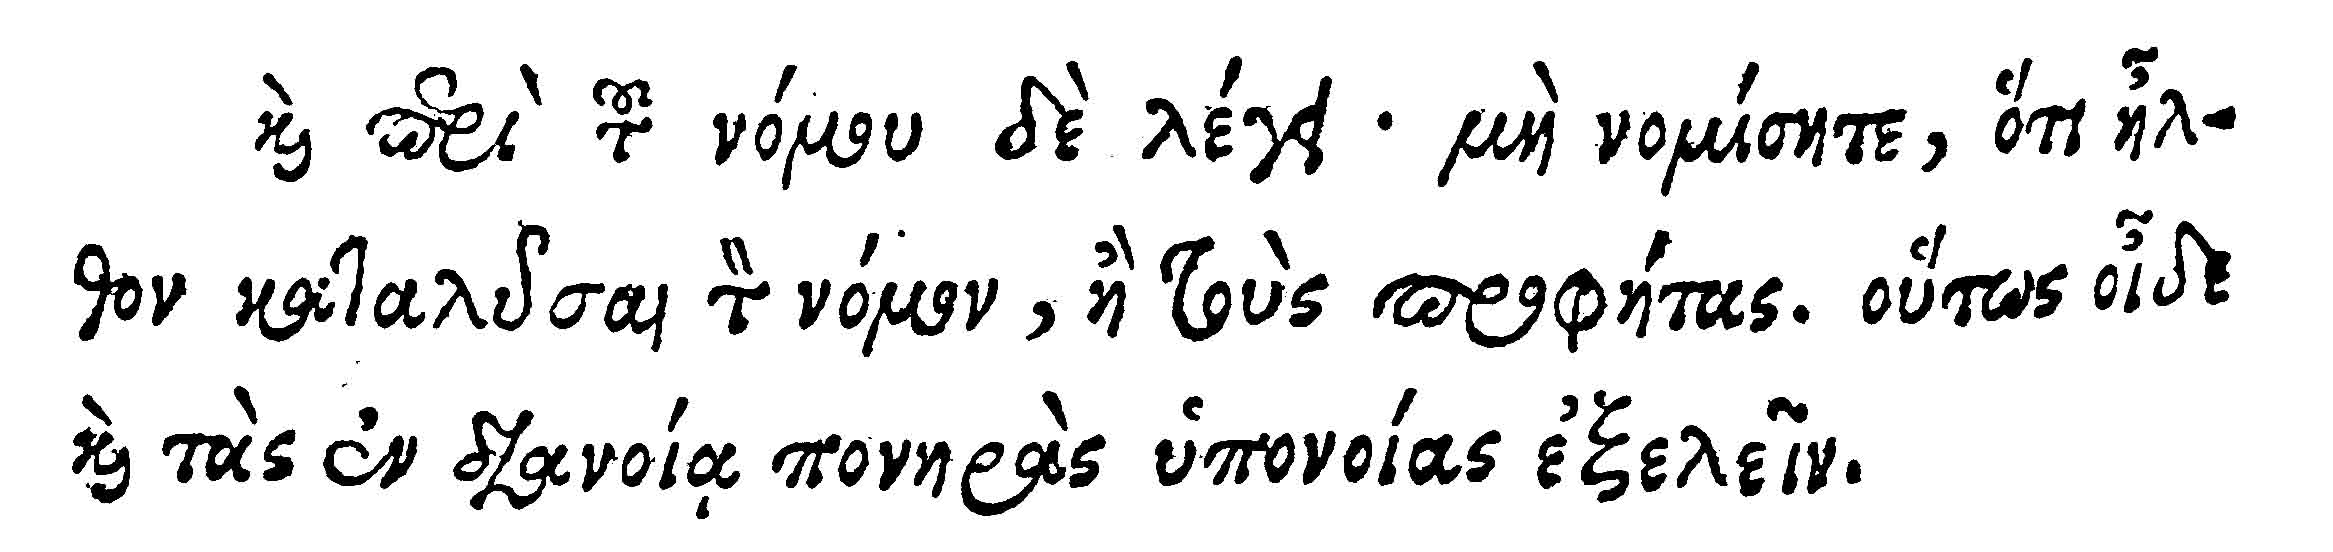 καὶ περὶ τοῦ νόμου δὲ λέγει · μὴ νομίσητε, ὅτι ἦλ-
θον καταλῦσαι τὸν νόμον, ἢ τοὺς προφήτας. οὕτως οἶδε
καὶ τὰς ἐν διανοίᾳ πονηρὰς ὑπονοίας ἐξελεῖν.